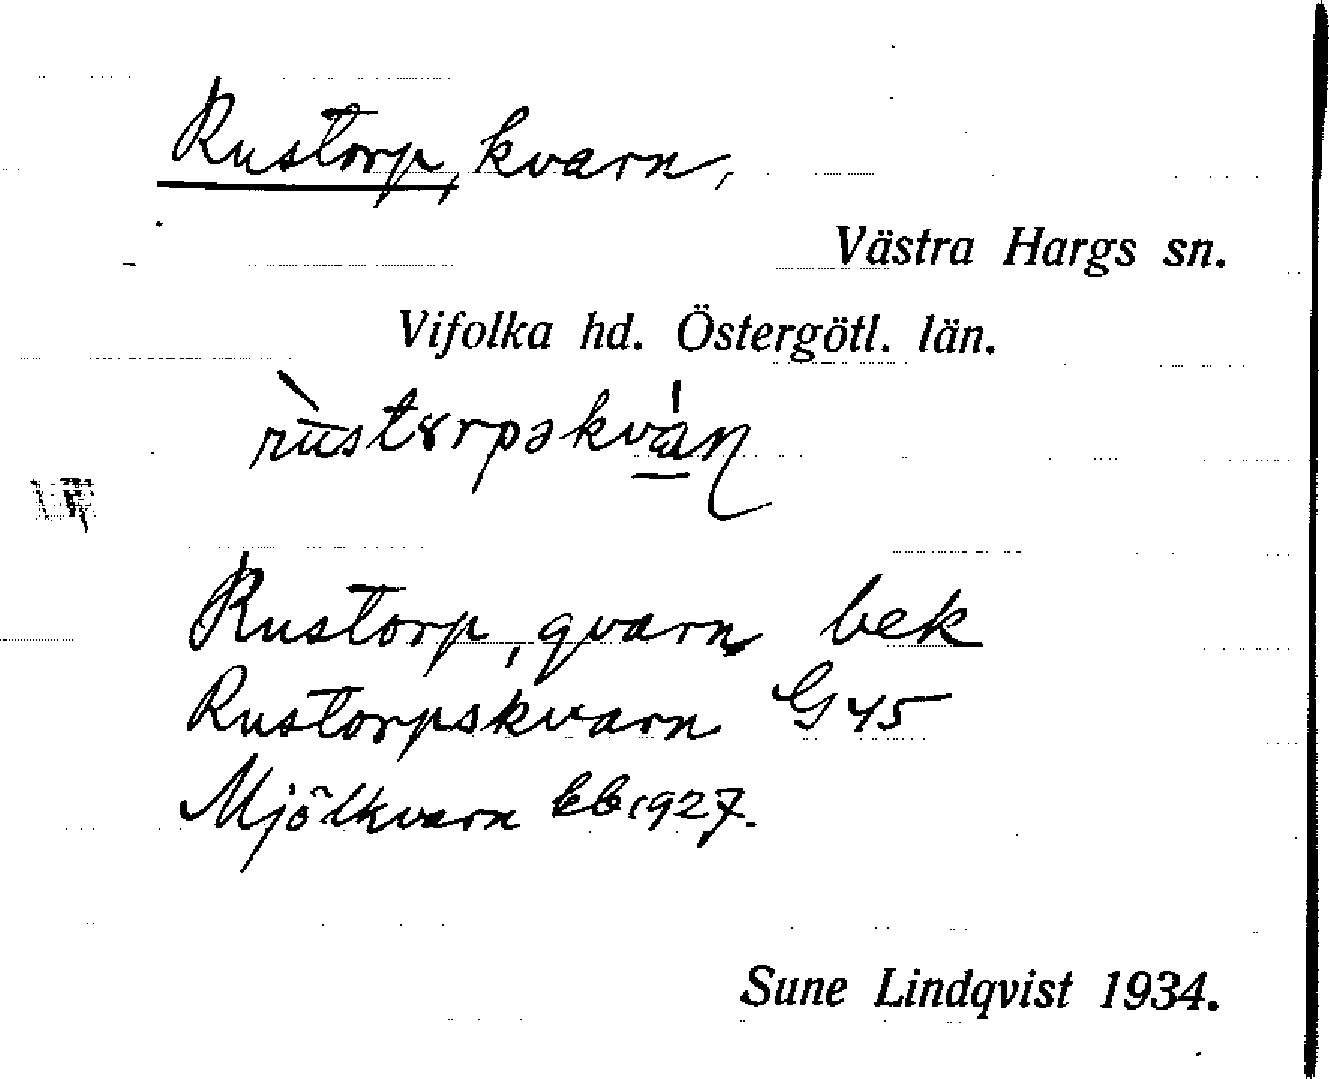 Rustorp, kvarn,
Västra Hargs sn.
Vifolka hd. Östergötl. län.
rùstɤrpəkván
Rustorp, qvarn bek
Rustorpskvarn G 45
Mjölkvarn kb 1927.
Sune Lindqvist 1934.